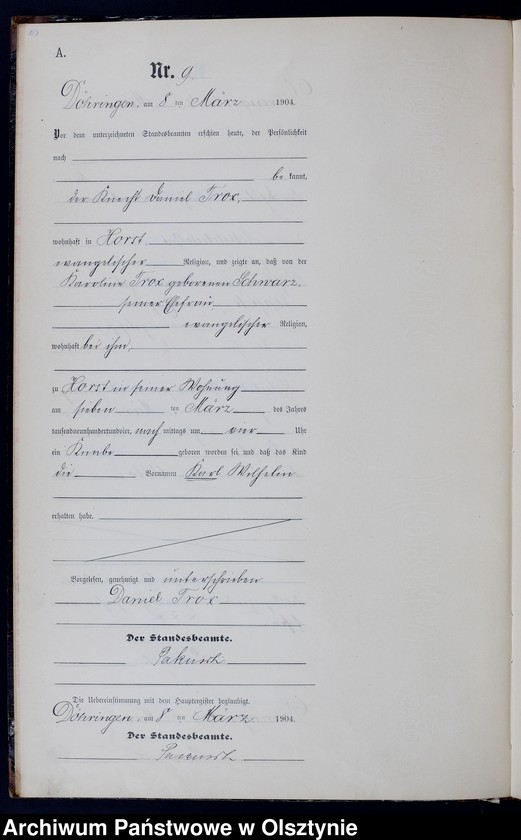 A.
Nr. 9.
Döhringen, am 8 ten März 1904.
Vor dem unterzeichneten Standesbeamten erschien heute, der Persönlichkeit
nach
be kannt,
der Knecht Daniel Trox,
wohnhaft in Horst
evangelischer Religion, und zeigte an, daß von der
Karoline Trox geborenen Schwarz,
seiner Ehefrau
evangelischer Religion,
wohnhaft bei ihm,
zu Horst in seiner Wohnung
am sieben ten März des Jahres
tausendneunhundertundvier, nach mittags um vier Uhr
ein Knabe geboren worden sei, und daß das Kind
die Vornamen Karl Wilhelm
erhalten habe.
Vorgelesen, genehmigt und unterschrieben
Daniel Trox
Der Standesbeamte.
Die Uebereinstimmung mit dem Hauptregister beglaubigt.
Döhringen, am 8 ten März 1904.
Der Standesbeamte.
Archiwum Państwowe w Olsztynie